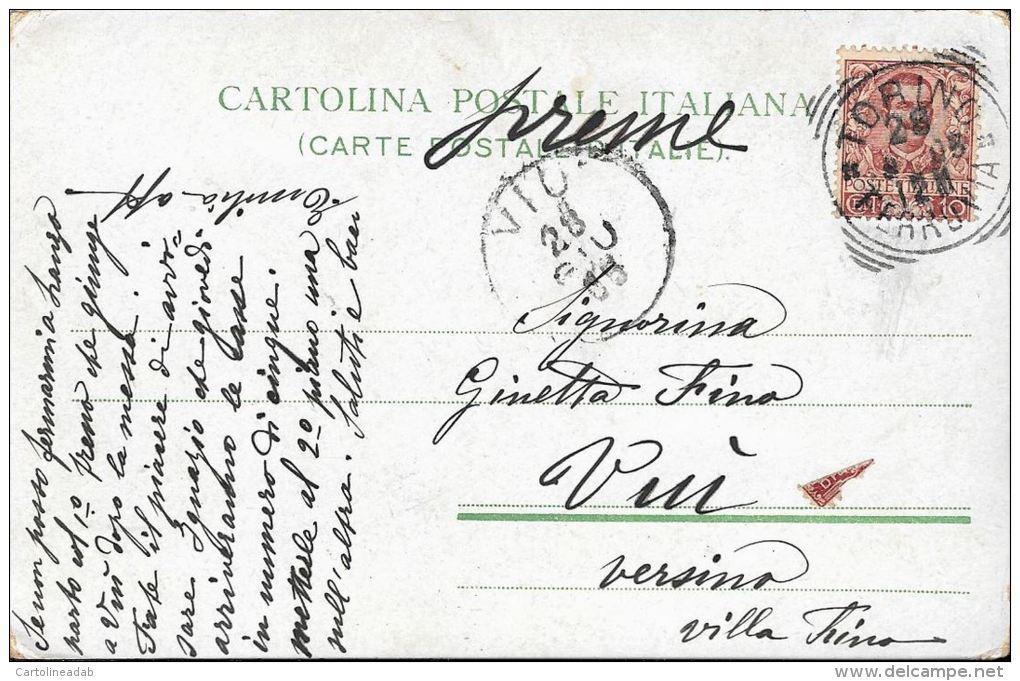 CARTOLINA POSTALE ITALIANA
(CARTE POSTALE D'ITALIE).
preme
TORINO
28
12 M
FERROVIA
POSTE ITALIANE
10
VIU
28
Signorina
Ginetta Fino
Viù
versino
villa Fino
Se non posso fermarmi a Lanzo
parto col 1º treno che giunge
a Viù dopo la messa.
Fate il piacere di avvi-
sare Ignazio che giovedì
arriveranno le casse
in numero di cinque.
metterle al 2º piano una
sull'altra. Saluti e baci
Emilia aff
Cartolineadab
www.delcampe.net